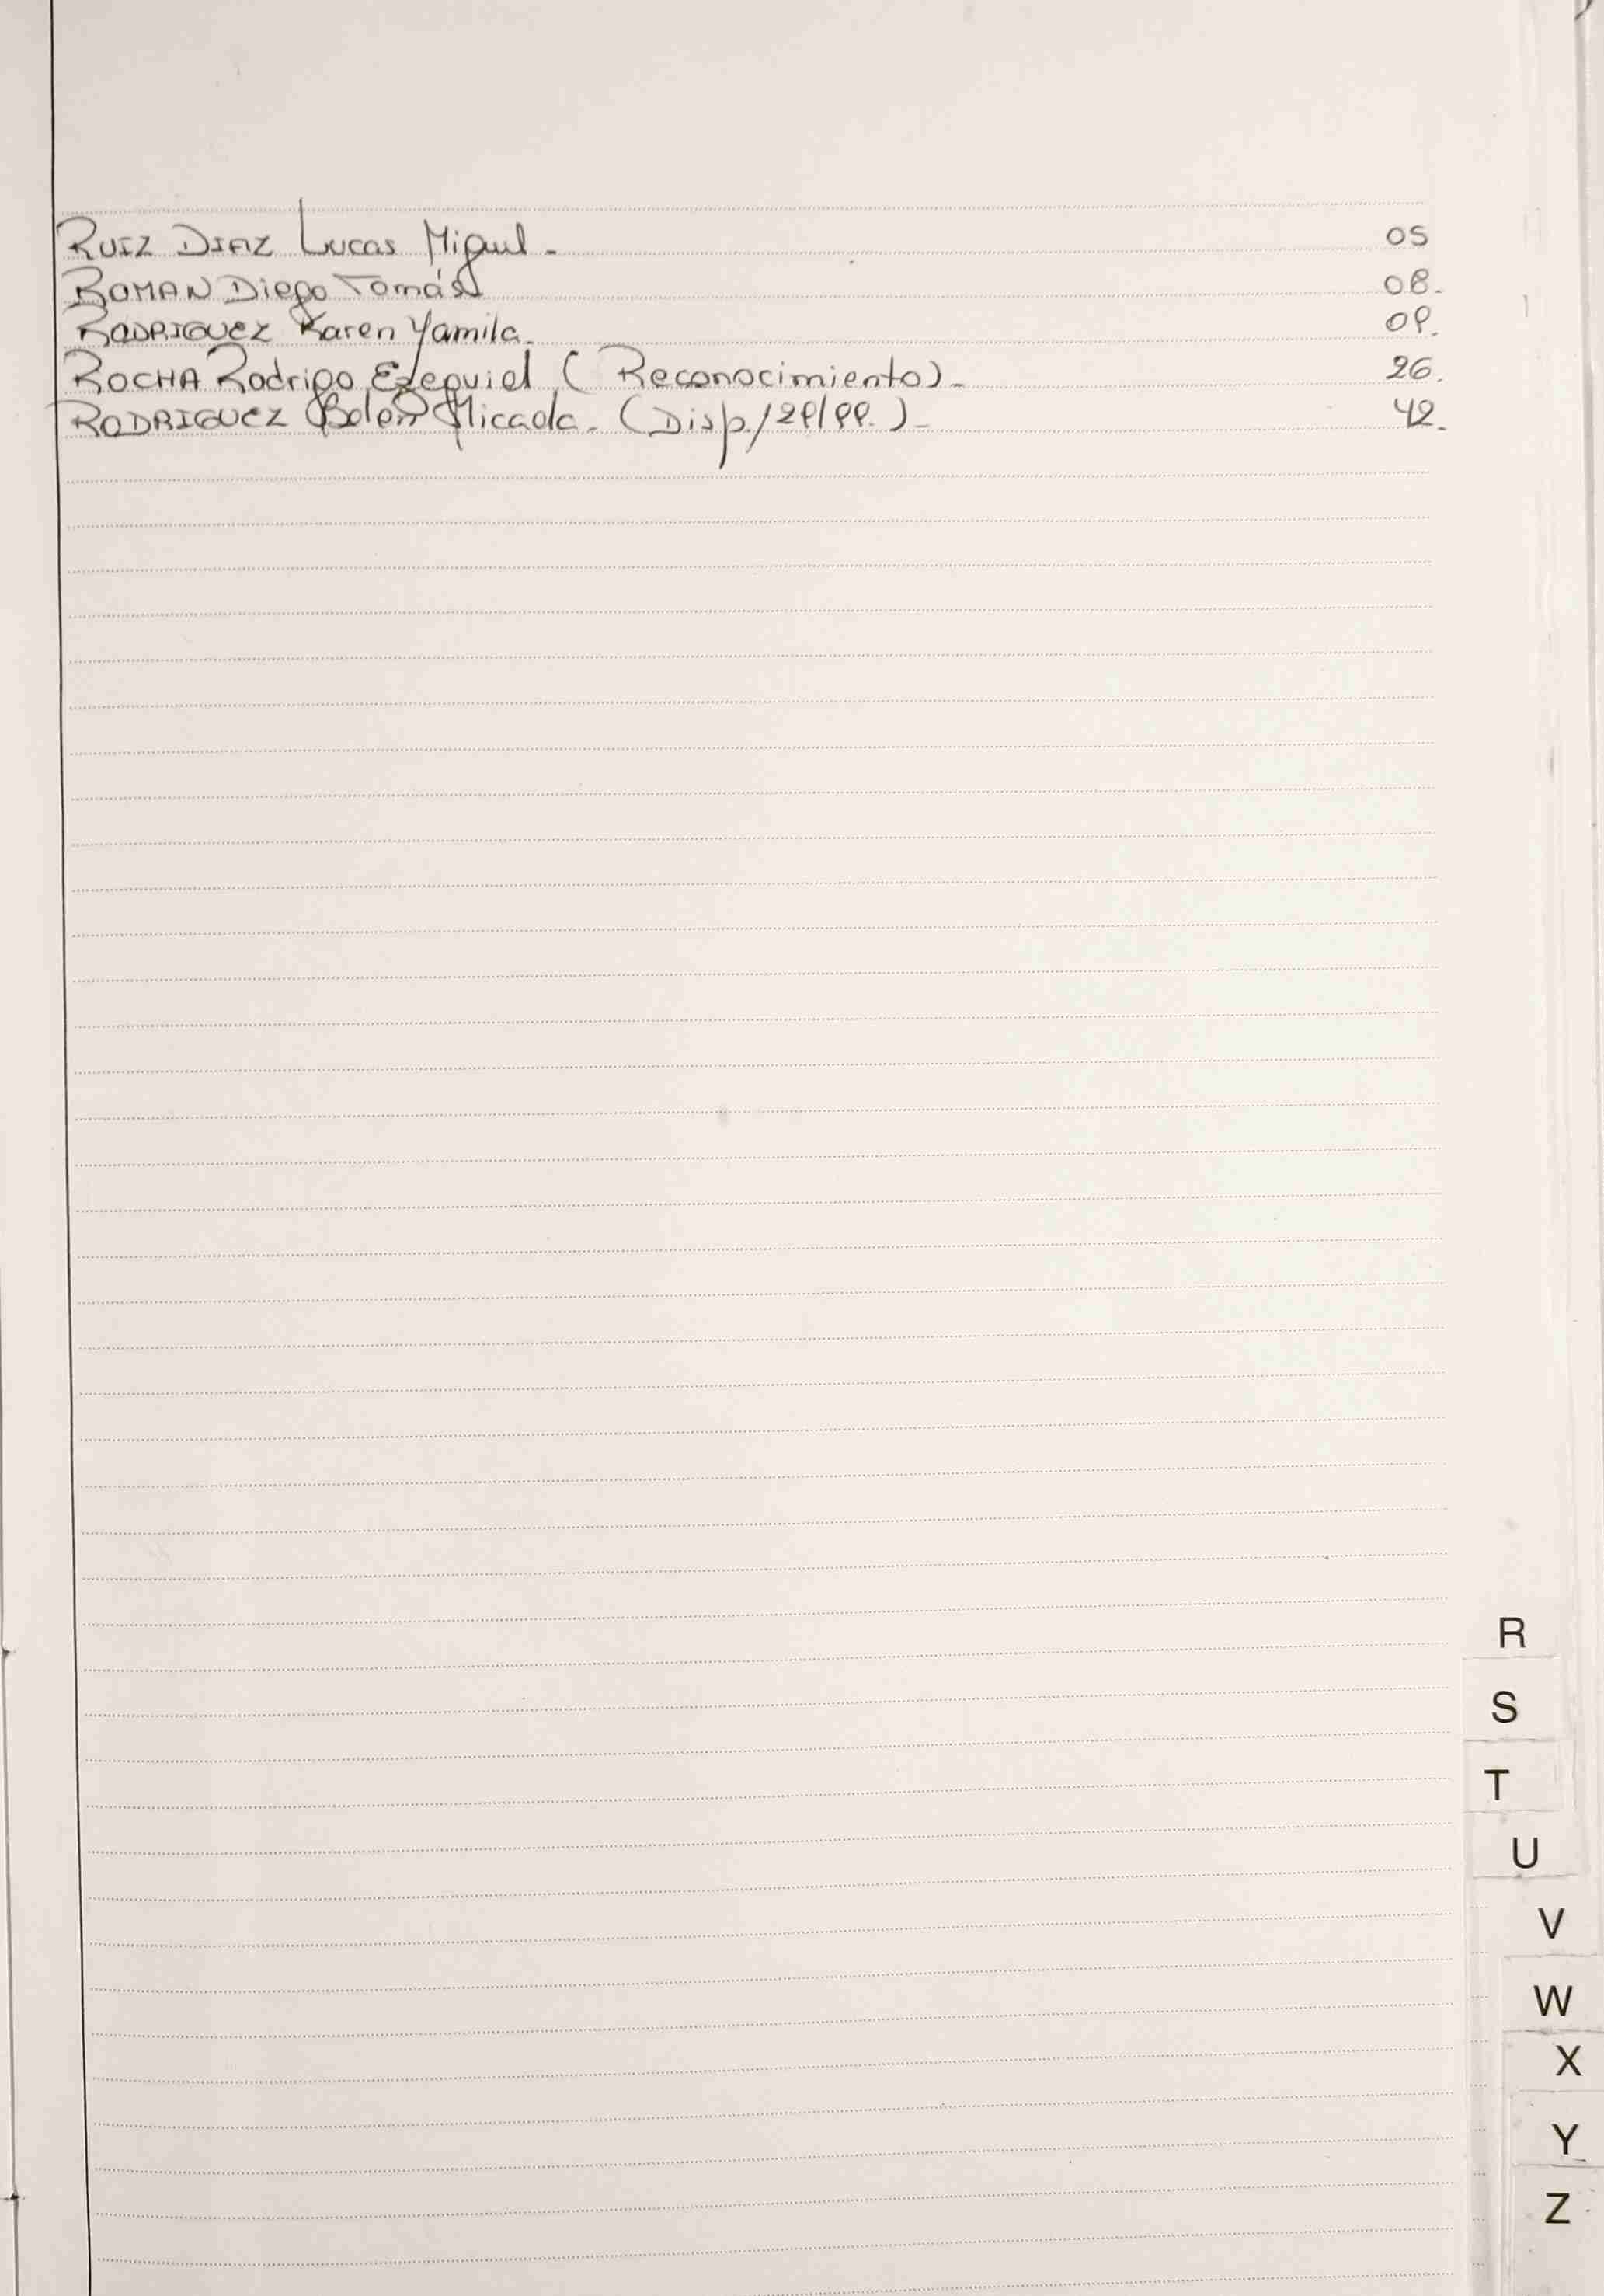 RUIZ DIAZ Lucas Miguel - 05
ROMAN Diego Tomás 08.
RODRIGUEZ Karen Yamila. 09.
ROCHA Rodrigo Ezequiel (Reconocimiento). 26.
RODRIGUEZ Belén Micaela. (Disp./29/99.) - 42.
R
S
T
U
V
W
X
Y
Z